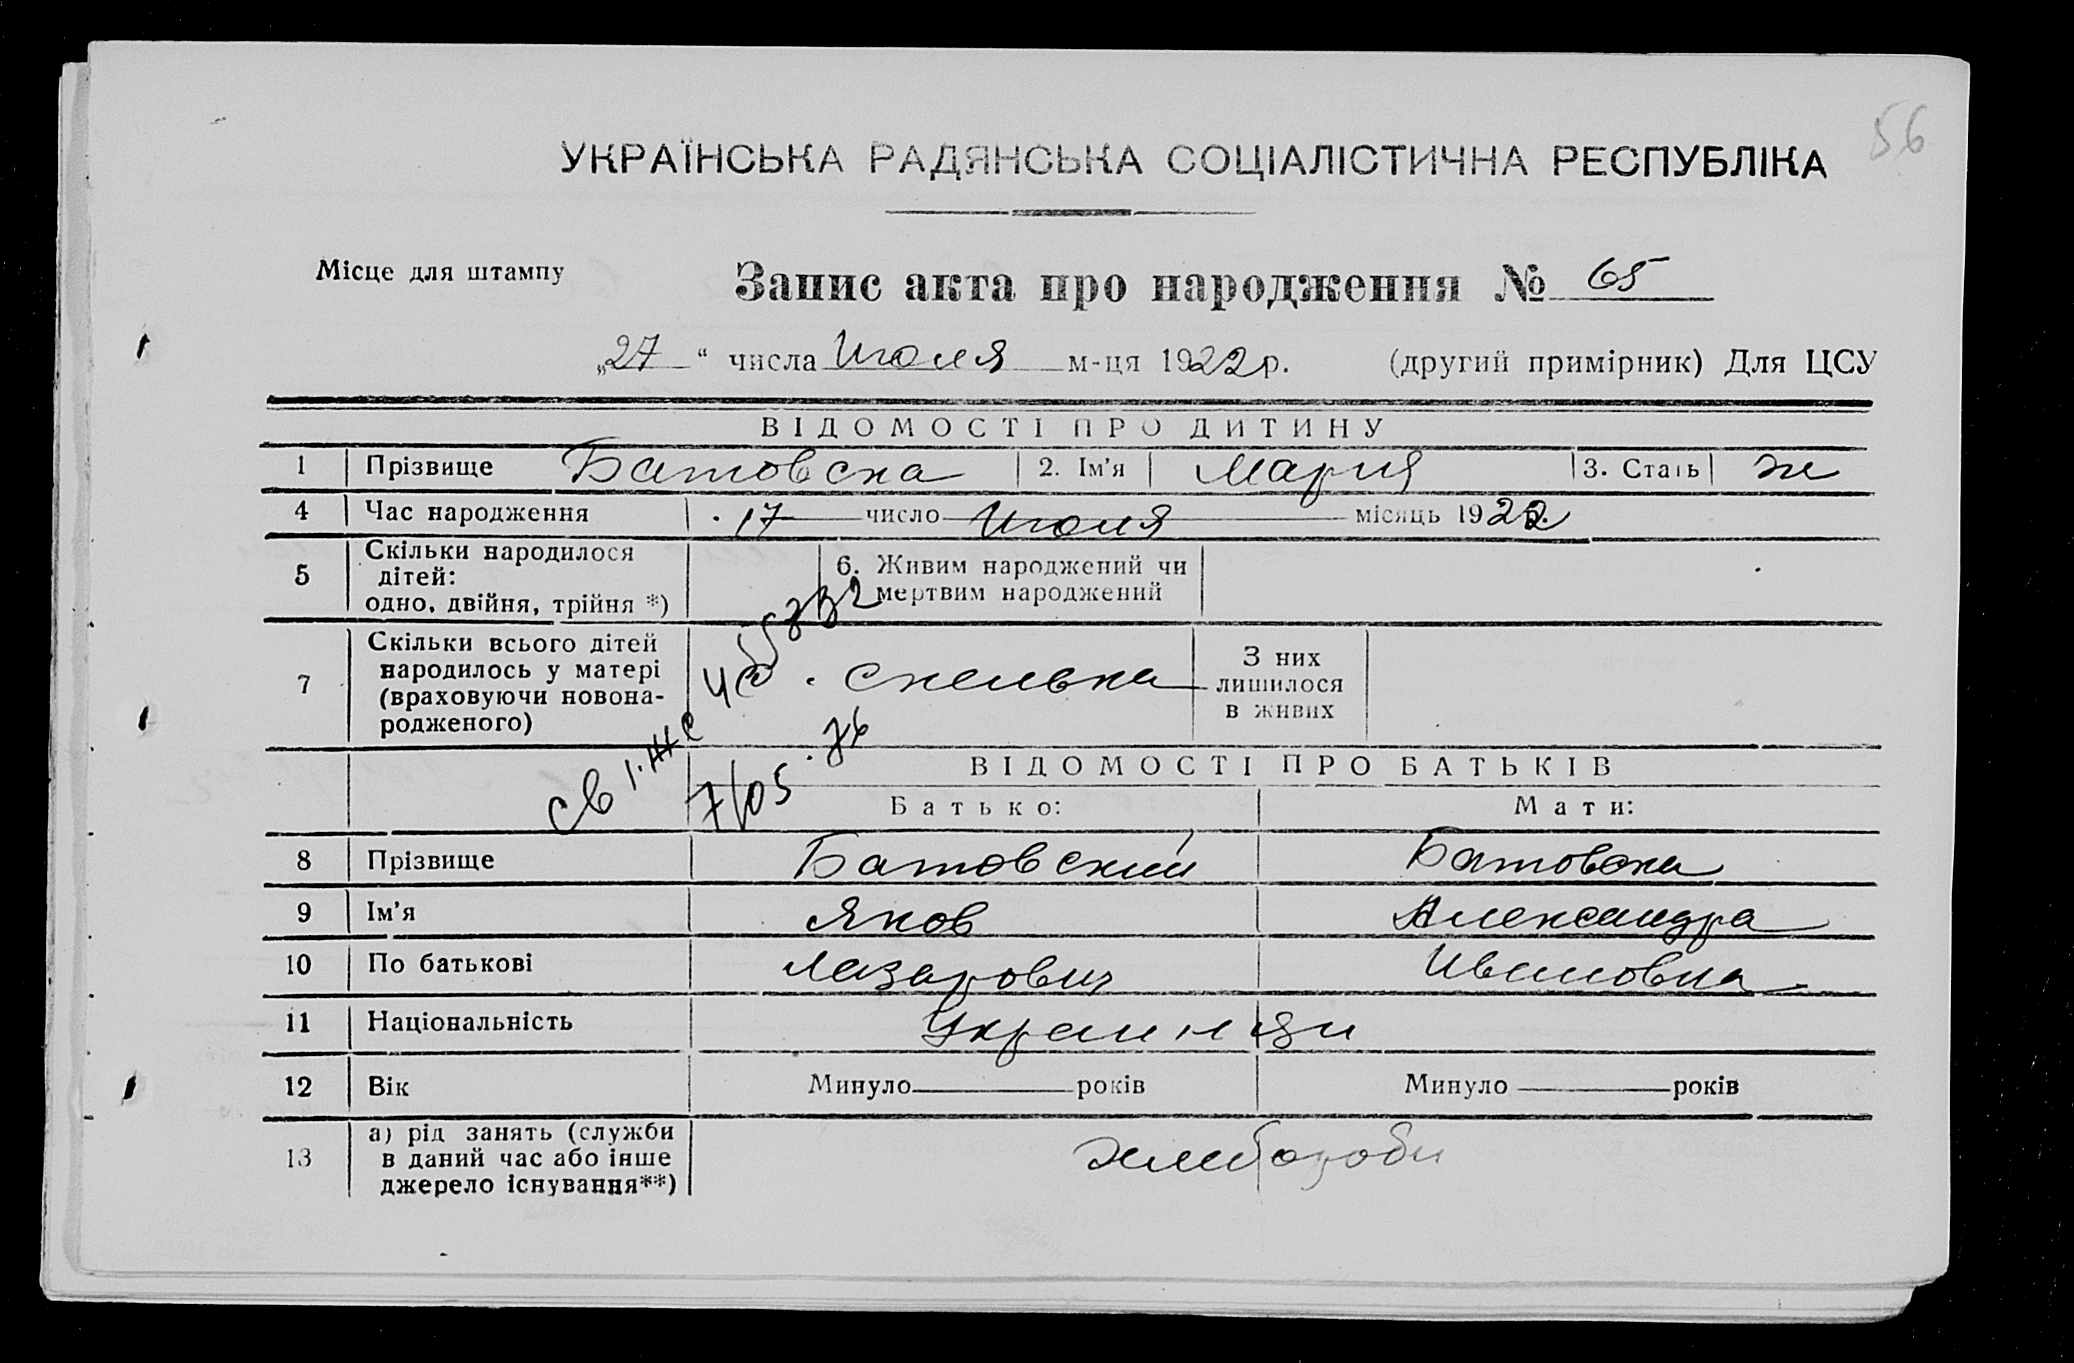 56
УКРАЇНСЬКА РАДЯНСЬКА СОЦІАЛІСТИЧНА РЕСПУБЛІКА
Місце для штампу
Запис акта про народження № 65
„27“ числа Июля м-ця 1922р. (другий примірник) Для ЦСУ
ВІДОМОСТІ ПРО ДИТИНУ
1 Прізвище Батовска 2. Ім'я Мария 3. Стать ж
4 Час народження 17 число Июля місяць 1922.
5 Скільки народилося дітей: одно, двійня, трійня *) 6. Живим народжений чи мертвим народжений
7 Скільки всього дітей народилось у матері (враховуючи новонародженого) с. Скелька З них лишилося в живих
св I-ЖС
7/05.76
ВІДОМОСТІ ПРО БАТЬКІВ
Батько: Мати:
8 Прізвище Батовский Батовска
9 Ім'я Яков Александра
10 По батькові Лазарович Ивановна
11 Національність Украинци
12 Вік Минуло років Минуло років
13 а) рід занять (служби в даний час або інше джерело існування**) хлебороби